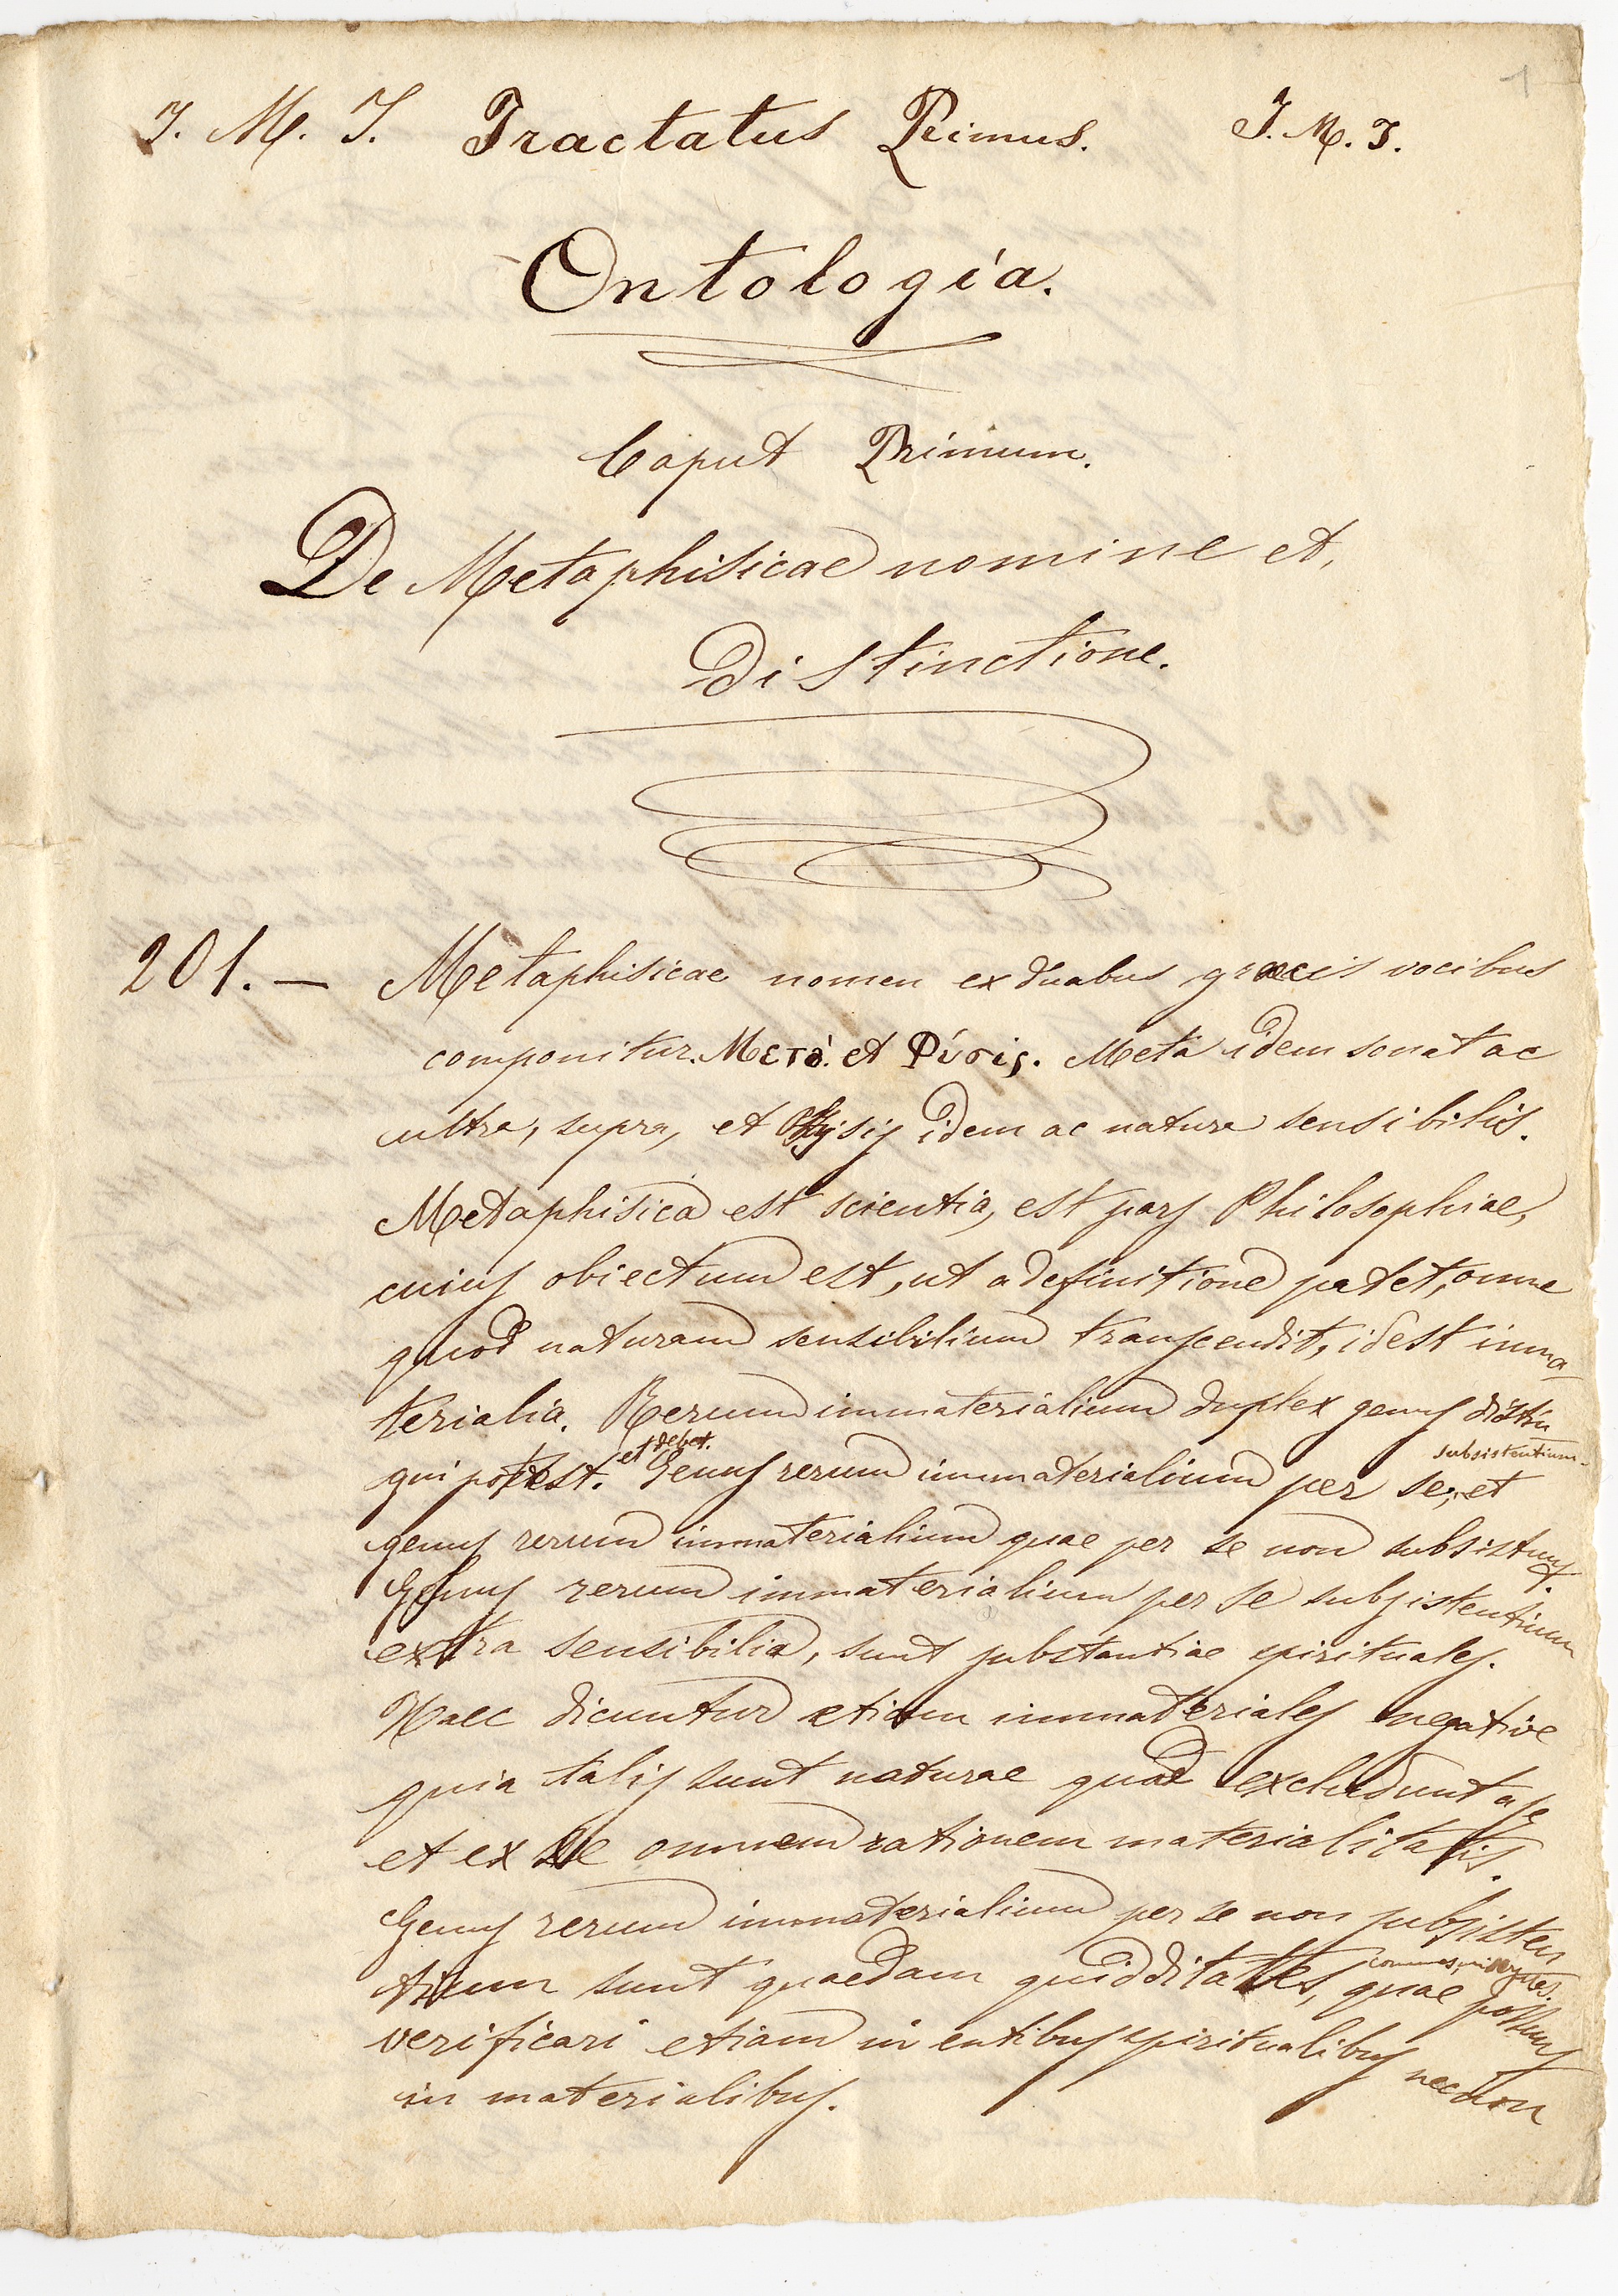 1
J. M. J. Tractatus Primus. J. M. J.
Ontologia.
Caput Primum.
De Metaphisicae nomine et,
distinctione.
201. — Metaphisicae nomen ex duabus graecis vocibus
componitur. Μετά. et Φύσις. Meta idem sonat ac
ultra, supra, et Physis idem ac natura sensibilis.
Metaphisica est scientia, est pars Philosophiae,
cuius obiectum est, ut a definitione patet, omne
quod naturam sensibilium transcendit, idest imma-
terialia. Rerum immaterialium duplex genus distin
et debet. subsistentium
gui potest. Genus rerum immaterialium per se, et
genus rerum immaterialium quae per se non subsistunt.
Genus rerum immaterialium per se subsistentium
extra sensibilia, sunt substantiae spirituales.
Haec dicuntur etiam immateriales negative
quia talis sunt naturae quae excludunt a se
et ex se omnem rationem materialitatis.
Genus rerum immaterialium per se non subsisten
tium sunt quaedam quidditates, quae possunt
verificari etiam in entibus spiritualibus necnon
in materialibus.